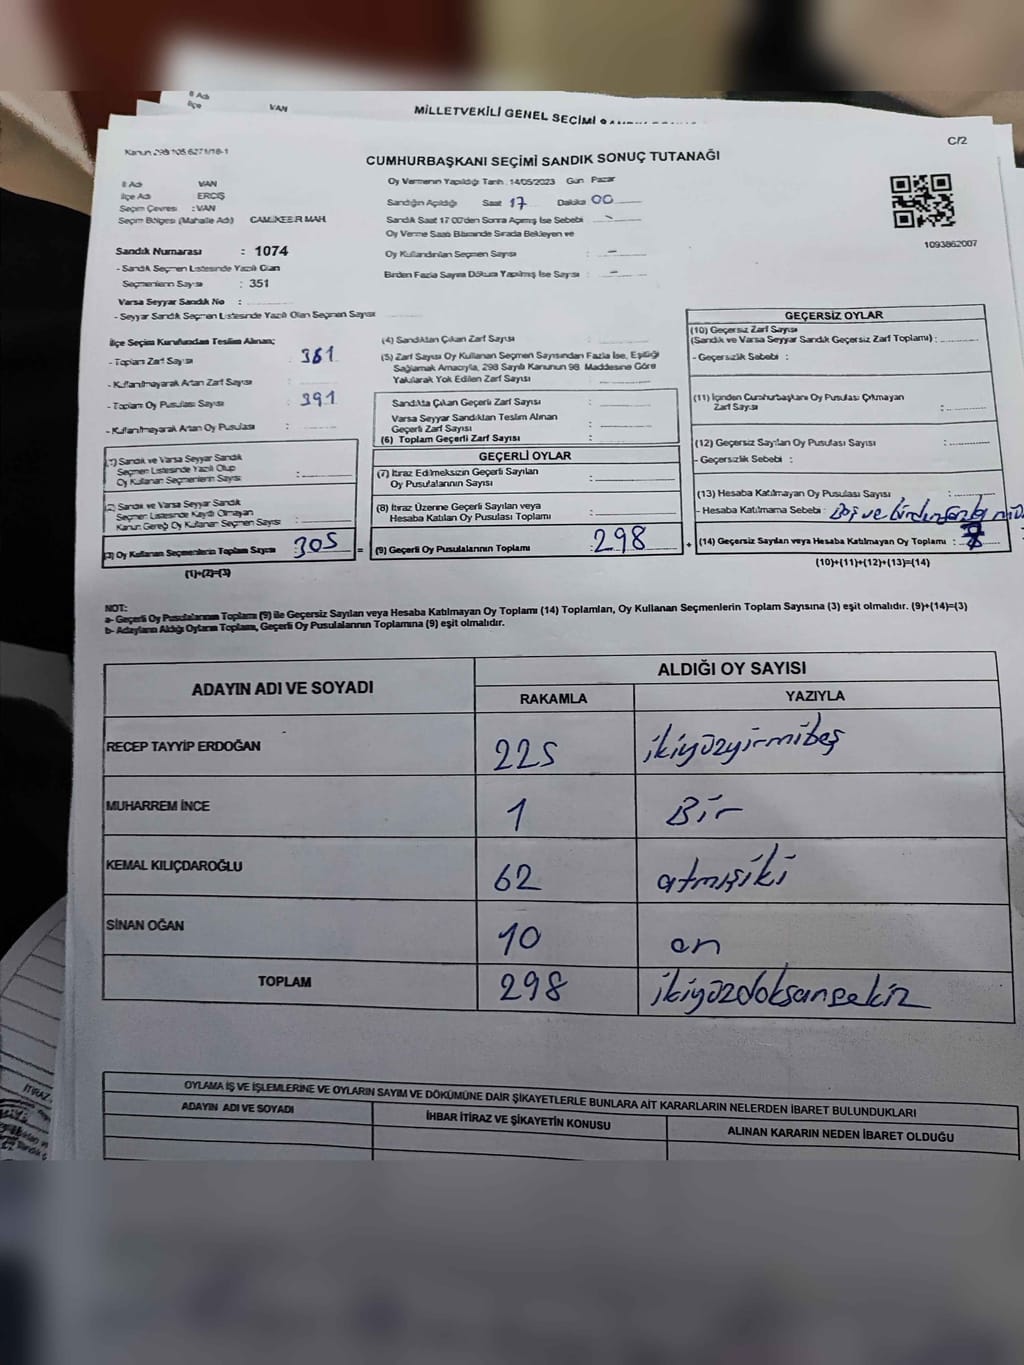 İl Adı
İlçe VAN
MİLLETVEKİLİ GENEL SEÇİMİ
C/2
Kanun 298 105,6271/18-1
CUMHURBAŞKANI SEÇİMİ SANDIK SONUÇ TUTANAĞI
İl Adı VAN
İlçe Adı ERCİŞ
Seçim Çevresi : VAN
Seçim Bölgesi (Mahalle Adı) CAMİKEBİR MAH.
Oy Vermenin Yapıldığı Tarih : 14/05/2023 Gün Pazar
Sandığın Açıldığı Saat 17 Dakika 00
Sandık Saat 17 00'den Sonra Açılmış İse Sebebi : -
Oy Verme Saati Bitiminde Sırada Bekleyen ve
Oy Kullandırılan Seçmen Sayısı : -
Birden Fazla Sayım Döküm Yapılmış İse Sayısı : -
1093862007
Sandık Numarası : 1074
- Sandık Seçmen Listesinde Yazılı Olan
Seçmenlerin Sayısı : 351
Varsa Seyyar Sandık No :
- Seyyar Sandık Seçmen Listesinde Yazılı Olan Seçmen Sayısı
İlçe Seçim Kurulundan Teslim Alınan;
- Toplam Zarf Sayısı : 361
- Kullanılmayarak Artan Zarf Sayısı :
- Toplam Oy Pusulası Sayısı : 391
- Kullanılmayarak Artan Oy Pusulası :
(1) Sandık ve Varsa Seyyar Sandık
Seçmen Listesinde Yazılı Olup
Oy Kullanan Seçmenlerin Sayısı :
(2) Sandık ve Varsa Seyyar Sandık
Seçmen Listesinde Kayıtlı Olmayan
Kanun Gereği Oy Kullanan Seçmen Sayısı :
(3) Oy Kullanan Seçmenlerin Toplam Sayısı : 305 =
(1)+(2)=(3)
(4) Sandıktan Çıkan Zarf Sayısı :
(5) Zarf Sayısı Oy Kullanan Seçmen Sayısından Fazla İse, Eşitliği
Sağlamak Amacıyla, 298 Sayılı Kanunun 98. Maddesine Göre
Yakılarak Yok Edilen Zarf Sayısı :
Sandıkta Çıkan Geçerli Zarf Sayısı :
Varsa Seyyar Sandıktan Teslim Alınan
Geçerli Zarf Sayısı :
(6) Toplam Geçerli Zarf Sayısı :
GEÇERLİ OYLAR
(7) İtiraz Edilmeksizin Geçerli Sayılan
Oy Pusulalarının Sayısı :
(8) İtiraz Üzerine Geçerli Sayılan veya
Hesaba Katılan Oy Pusulası Toplamı :
(9) Geçerli Oy Pusulalarının Toplamı : 298 +
GEÇERSİZ OYLAR
(10) Geçersiz Zarf Sayısı
(Sandık ve Varsa Seyyar Sandık Geçersiz Zarf Toplamı) :
- Geçersizlik Sebebi :
(11) İçinden Cumhurbaşkanı Oy Pusulası Çıkmayan
Zarf Sayısı :
(12) Geçersiz Sayılan Oy Pusulası Sayısı :
- Geçersizlik Sebebi :
(13) Hesaba Katılmayan Oy Pusulası Sayısı :
- Hesaba Katılmama Sebebi : Boş ve birden fazla
(14) Geçersiz Sayılan veya Hesaba Katılmayan Oy Toplamı :
(10)+(11)+(12)+(13)=(14)
NOT:
a- Geçerli Oy Pusulalarının Toplamı (9) ile Geçersiz Sayılan veya Hesaba Katılmayan Oy Toplamı (14) Toplamları, Oy Kullanan Seçmenlerin Toplam Sayısına (3) eşit olmalıdır. (9)+(14)=(3)
b- Adayların Aldığı Oyların Toplamı, Geçerli Oy Pusulalarının Toplamına (9) eşit olmalıdır.
ADAYIN ADI VE SOYADI ALDIĞI OY SAYISI
RAKAMLA YAZIYLA
RECEP TAYYİP ERDOĞAN 225 ikiyüzyirmibeş
MUHARREM İNCE 1 Bir
KEMAL KILIÇDAROĞLU 62 atmışiki
SİNAN OĞAN 10 on
TOPLAM 298 ikiyüzdoksansekiz
OYLAMA İŞ VE İŞLEMLERİNE VE OYLARIN SAYIM VE DÖKÜMÜNE DAİR ŞİKAYETLERLE BUNLARA AİT KARARLARIN NELERDEN İBARET BULUNDUKLARI
ADAYIN ADI VE SOYADI İHBAR İTİRAZ VE ŞİKAYETİN KONUSU ALINAN KARARIN NEDEN İBARET OLDUĞU